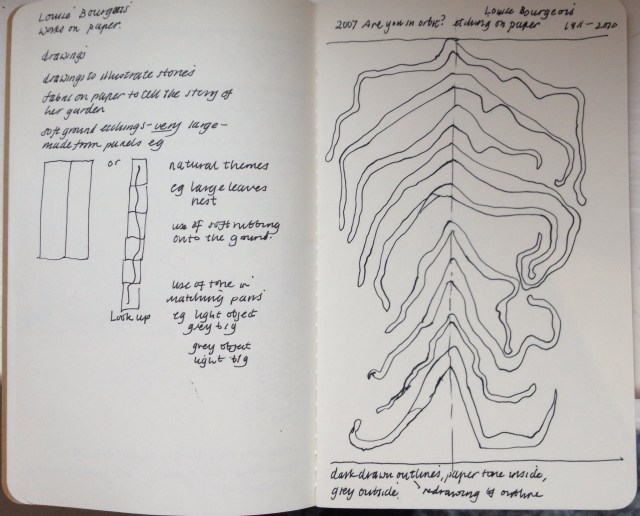 Louise Bourgeois
works on paper.
drawings
drawings to illustrate stories
fabric on paper to tell the story of
her garden
soft ground etchings - very large -
made from panels eg
or
natural themes
eg large leaves
nest
use of soft rubbing
onto the ground.
use of tone in
matching pairs
eg light object
grey b/g
grey object
light b/g
Look up
Louise Bourgeois
2007 Are you in orbit? etching on paper 1911-2010
dark drawn outlines, paper tone inside,
grey outside. redrawing of outline